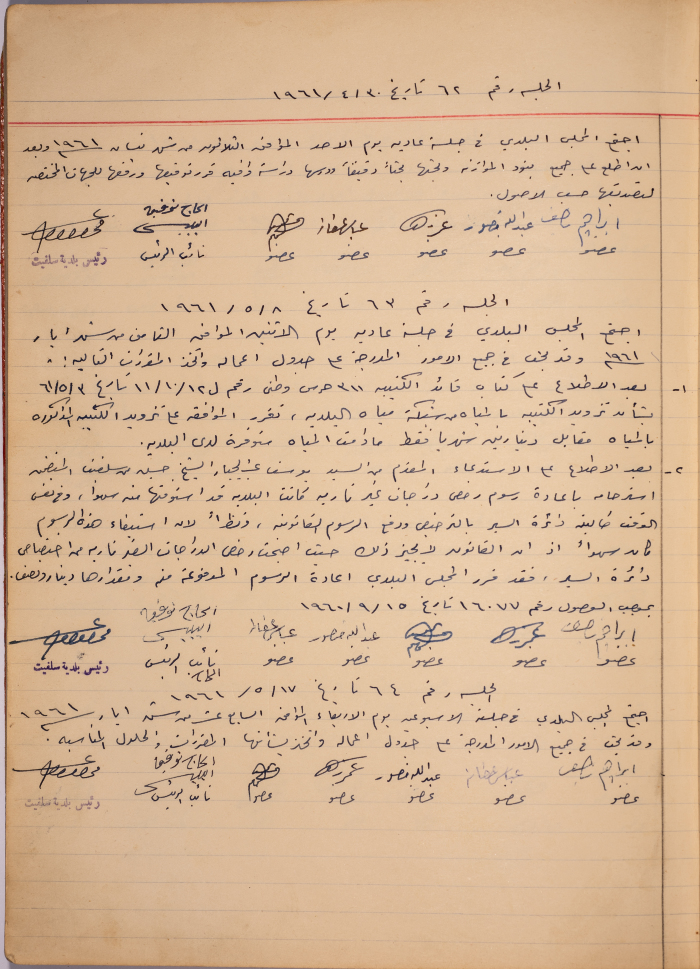 الجلسه رقم ٦٢ تاريخ ٣٠/٤/١٩٦١
اجتمع المجلس البلدي في جلسة عاديه يوم الاحد الموافق الثلاثون من شهر نيسان ١٩٦١ وبعد
ان اطلع على جميع بنود الموازنه وبحثها بحثاً دقيقاً ودرسها دراسة وافيه قرر توقيعها ورفعها للجهات المختصه
لتصديقها حسب الاصول.
ابراهيم عبدالله منصور عزريل عباس الحاج توفيق
عضو عضو عضو عضو عضو نائب الرئيس رئيس بلدية سلفيت
الجلسه رقم ٦٣ تاريخ ٨/٥/١٩٦١
اجتمع المجلس البلدي في جلسة عاديه يوم الاثنين الموافق الثامن من شهر ايار
١٩٦١ وقد بحث في جميع الامور المدرجة على جدول اعماله واتخذ المقررات التاليه :
١- بعد الاطلاع على كتاب قائد الكتيبه ٣١١ حرس وطني رقم ل١٢/١٠/١١ تاريخ ٣/٥/٦١
بشأن تزويد الكتيبه بالمياه من شبكة مياه البلديه ، تقرر الموافقه على تزويد الكتيبه المذكوره
بالمياه مقابل دينارين شهريا فقط مادامت المياه متوفرة لدى البلديه.
٢- بعد الاطلاع على الاستدعاء المقدم من السيد يوسف عبدالجبار الشيخ حسين من سلفيت المتضمن
استرحامه باعادة رسوم رخص دراجات غير ناريه كانت البلديه قد استوفتها منه سهوا، وفي نفس
الوقت طالبته دائرة السير بالترخيص ودفع الرسوم القانونيه ، ونظراً لان استيفاء هذه الرسوم
كان سهواً اذ ان القانون لا يجيز ذلك حيث اصبحت رخص الدراجات الغير ناريه من اختصاص
دائرة السير ، فقد قرر المجلس البلدي اعادة الرسوم المدفوعة منه ومقدارها دينار ونصف.
بموجب الوصول رقم ١٦٠٧٧ تاريخ ١٥/٩/١٩٦٠
ابراهيم عزريل عبدالله منصور عباس الحاج توفيق
عضو عضو عضو عضو عضو نائب الرئيس رئيس بلدية سلفيت
الجلسه رقم ٦٤ تاريخ ١٧/٥/١٩٦١
اجتمع المجلس البلدي في جلسته الاسبوعيه يوم الاربعاء الموافق السابع عشر من شهر ايار ١٩٦١
وقد بحث في جميع الامور المدرجة على جدول اعماله واتخذ بشأنها المقررات والحلول المناسبه.
ابراهيم عباس عبدالله منصور عزريل الحاج توفيق
عضو عضو عضو عضو عضو نائب الرئيس رئيس بلدية سلفيت